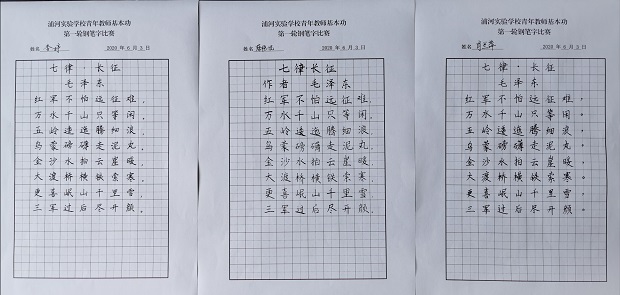 浦河实验学校青年教师基本功
第一轮钢笔字比赛
姓名
2020 年 6 月 5 日
七律·长征
毛泽东
红军不怕远征难,
万水千山只等闲。
五岭逶迤腾细浪,
乌蒙磅礴走泥丸。
金沙水拍云崖暖,
大渡桥横铁索寒。
更喜岷山千里雪,
三军过后尽开颜。
浦河实验学校青年教师基本功
第一轮钢笔字比赛
姓名
2020 年 6 月 5 日
七律·长征
作者 毛泽东
红军不怕远征难,
万水千山只等闲。
五岭逶迤腾细浪
乌蒙磅礴走泥丸。
金沙水拍云崖暖,
大渡桥横铁索寒。
更喜岷山千里雪,
三军过后尽开颜。
浦河实验学校青年教师基本功
第一轮钢笔字比赛
姓名
2020 年 6 月 5 日
七律·长征
毛泽东
红军不怕远征难,
万水千山只等闲。
五岭逶迤腾细浪,
乌蒙磅礴走泥丸。
金沙水拍云崖暖,
大渡桥横铁索寒。
更喜岷山千里雪,
三军过后尽开颜。